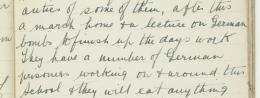 antics of some of them, after this
a march home & a lecture on German
bombs to finish up the days work
They have a number of German
prisoners working on & around this
school & they will eat anything